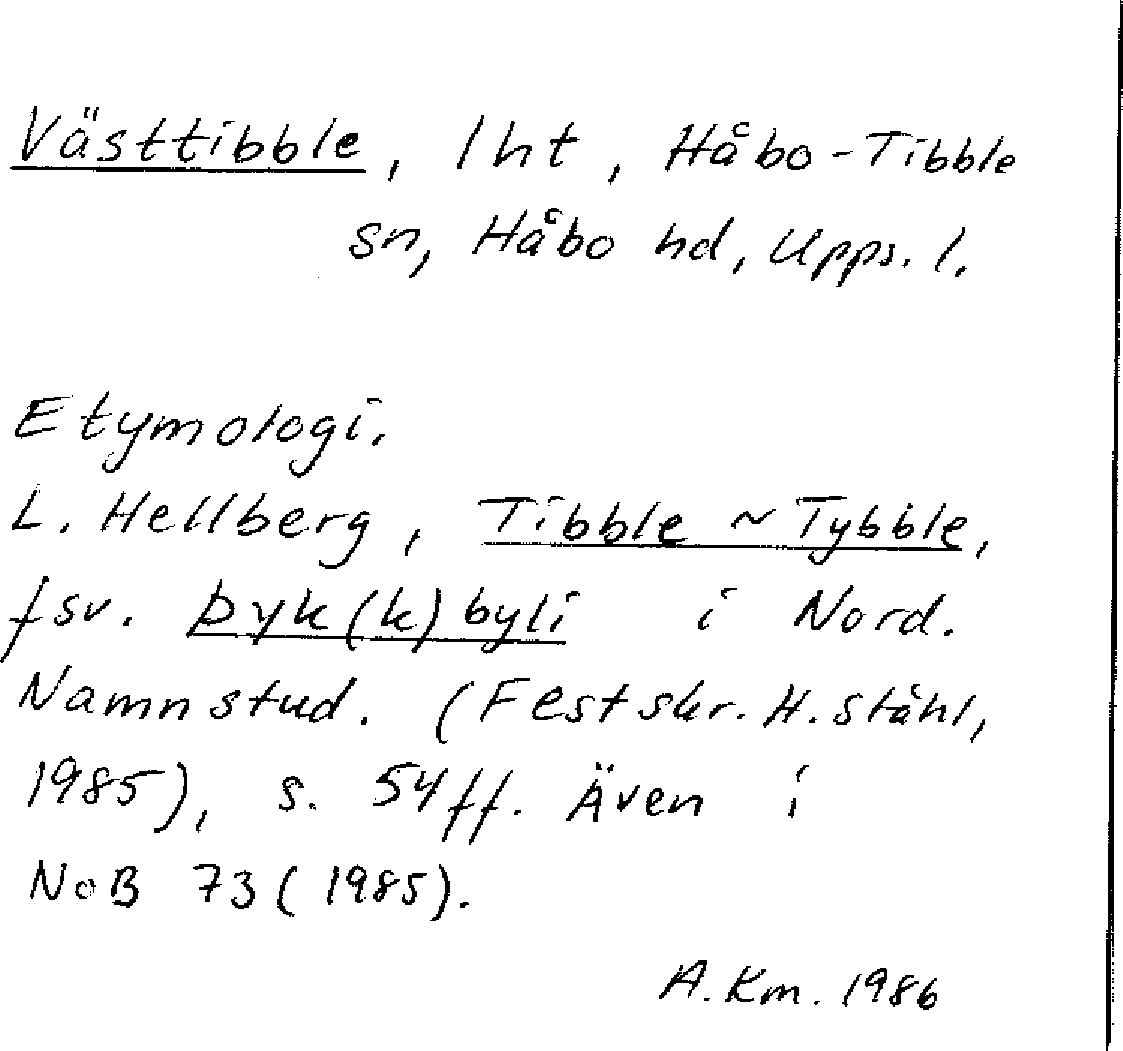 Västtibble, lht, Håbo-Tibble
sn, Håbo hd, Upps. l.
Etymologi.
L. Hellberg, Tibble ~ Tybble,
fsv. Þyk(k)byli i Nord.
Namnstud. (Festskr. H. Ståhl,
1985), s. 54 ff. Även i
NoB 73 (1985).
A. Km. 1986